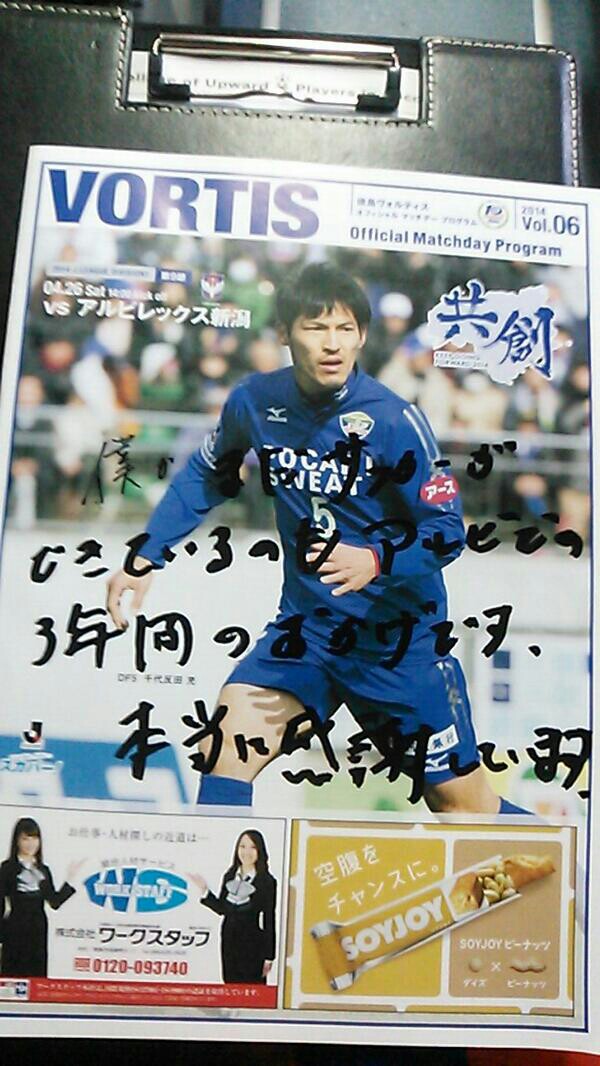 of Upward Players in
VORTIS
徳島ヴォルティス
オフィシャル マッチデー プログラム
2014
Vol.06
Official Matchday Program
04.26 Sat 14:00 kick off
vs アルビレックス新潟
共創
KEEP GOING
FORWARD 2014
POCARI
SWEAT
5
アース
僕がまだサッカーが
できているのもアルビでの
3年間のおかげです、
本当に感謝しています
DF5 千代反田 充
J
スカパー!
銀行
お仕事・人材探しの近道は…
総合人材サービス
WORK STAFF
株式会社 ワークスタッフ
0120-093740
空腹を
チャンスに。
SOYJOY
SOYJOY ピーナッツ
ダイズ × ピーナッツ